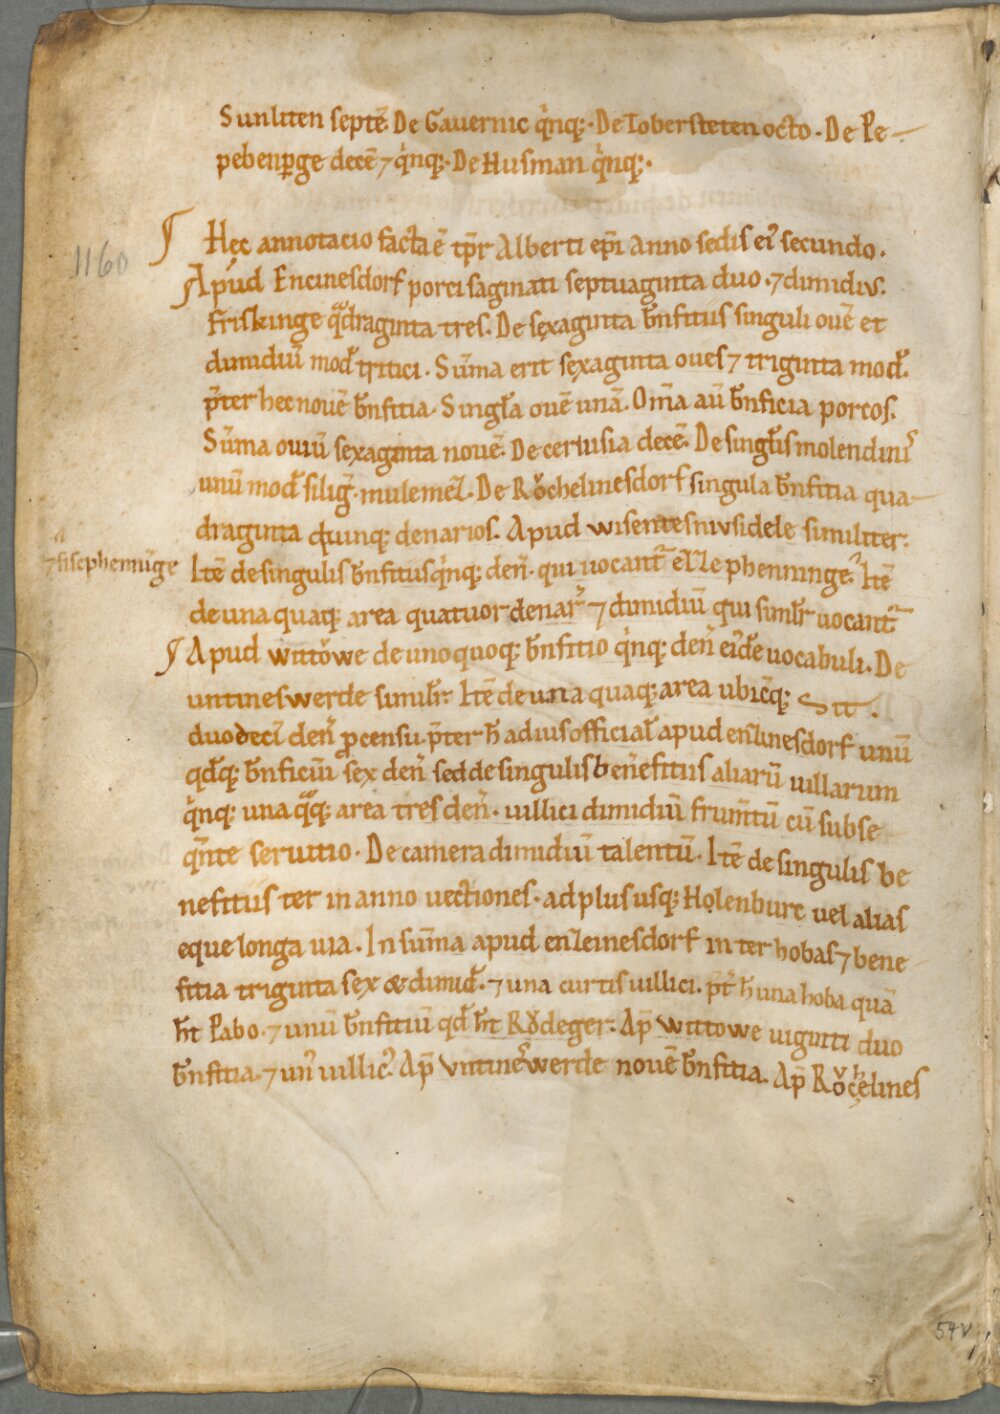 Sunliten septē. De Gauernic q̊nq;. De Tobersteten octo. De Pe-
pebenꝑge decē ⁊ q̊nq;. De Husman q̊nq;.
¶ Hęc annotacio facta ē tp̄r Alberti ep̄i anno sedis ei᷒ secundo.
1160
Apud Encinesdorf porci saginati septuaginta duo. ⁊ dimidiu᷒.
Friskinge qͣdraginta tres. De sęxaginta b̄nfitiis singuli ouē et
dimidiū mod̄ tritici. Sūma erit sęxaginta oues ⁊ triginta mod̄.
p̄ter hec nouē b̄nfitia. Singl̄a ouē unā. Om̄a aū b̄nficia porcos.
Sūma ouiū sexaginta nouē. De ceruisia decē. De singl̄is molendini᷒
unū mod̄ siliḡ. mulemel. De Rǒchelinesdorf singula b̄nfitia qua-
draginta quinq; denarios. Apud wisentesniusidele similiter.
⁊ fiscphennīge
Itē de singulis b̄nfitiis q̊nq; den̄. qui uocant᷑ elle phenninge. Itē
de una quaq; area quatuor denar᷒ ⁊ dimidiū qui simil̄r uocant᷑
¶ Apud wittǒwe de uno quoq; b̄nfitio q̊nq; den̄ ei᷒dē uocabuli. De
untineswerde simil̄r. Itē de una quaq; area ubicūq; sit.
duodeci den̄ ꝓ censu p̄ter h̄ adius official̄ apud enzinesdorf unū
qd̄q; b̄nficiū sex den̄ sed de singulis ben̄efitiis aliarū uillarum
q̊nq; una qͣq; area tres den̄. uillici dimidiū frum̄tū cū subse
q̄nte seruitio. De camera dimidiū talentū. Itē de singulis be
nefitiis ter in anno uectiones. ad plus usq; Holenburc uel alias
eque longa uia. In sūma apud enzeinesdorf inter hobas ⁊ bene
fitia triginta sex & dimid̄. ⁊ una curtis uillici. p̄t᷒ h̄ una hoba quā
h̄t Pabo. ⁊ unū b̄nfitiū qd̄ h̄t Rǒdeger. Ap̄ wittowe uiginti duo
b̄nfitia. ⁊ un᷒ uillic᷒. Ap̄ Vntine᷒werde nouē b̄nfitia. Ap̄ Rǒchelines
54v